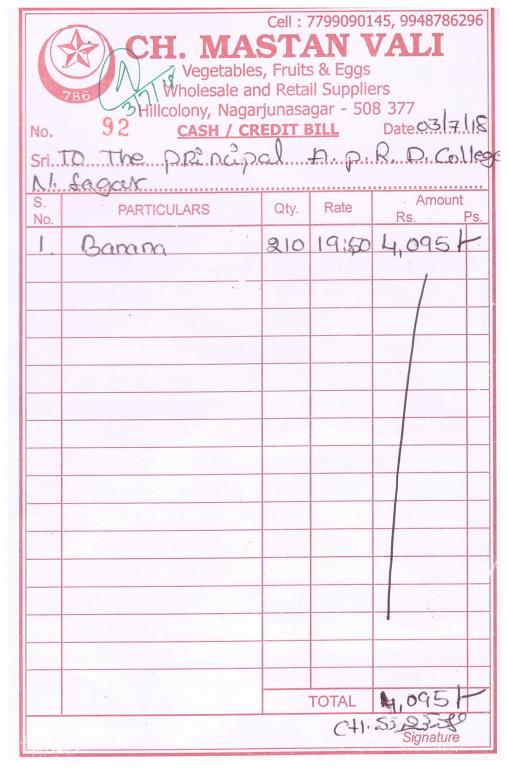 Cell : 7799090145, 9948786296
CH. MASTAN VALI
786
Vegetables, Fruits & Eggs
Wholesale and Retail Suppliers
Hillcolony, Nagarjunasagar - 508 377
3/7/18
No. 92 CASH / CREDIT BILL Date 03/7/18
Sri. To The principal A.P.R.D. College
N. Sagar
S. No. PARTICULARS Qty. Rate Amount Rs. Ps.
1. Banana 210 19:50 4,095/-
TOTAL 4,095/-
CH.
Signature